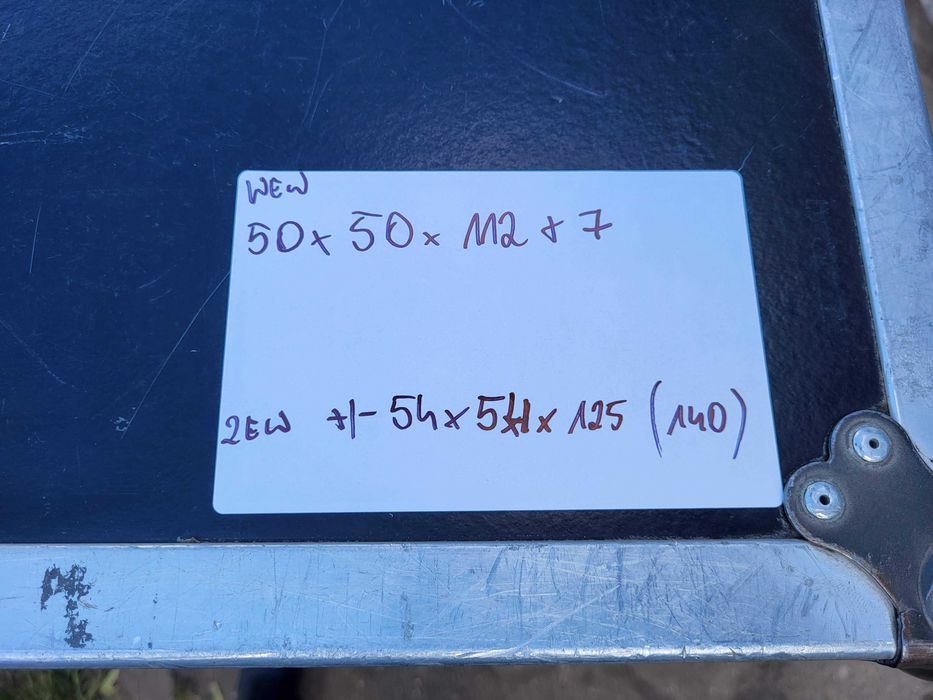 WEW
50 x 50 x 112 + 7
ZEW +/- 54 x 54 x 125 (140)